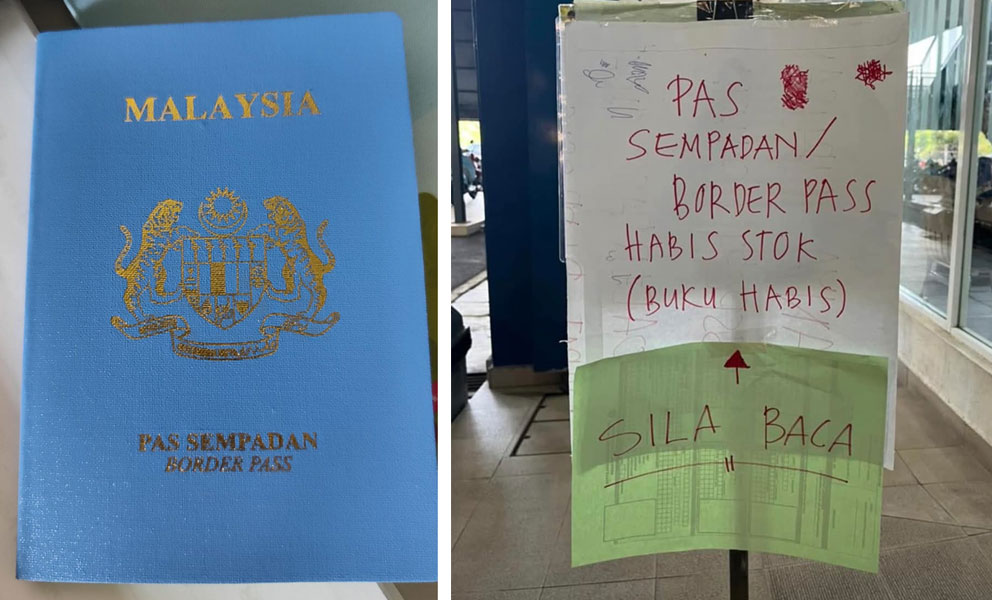 MALAYSIA
PAS SEMPADAN
BORDER PASS
PAS
SEMPADAN/
BORDER PASS
HABIS STOK
(BUKU HABIS)
SILA BACA